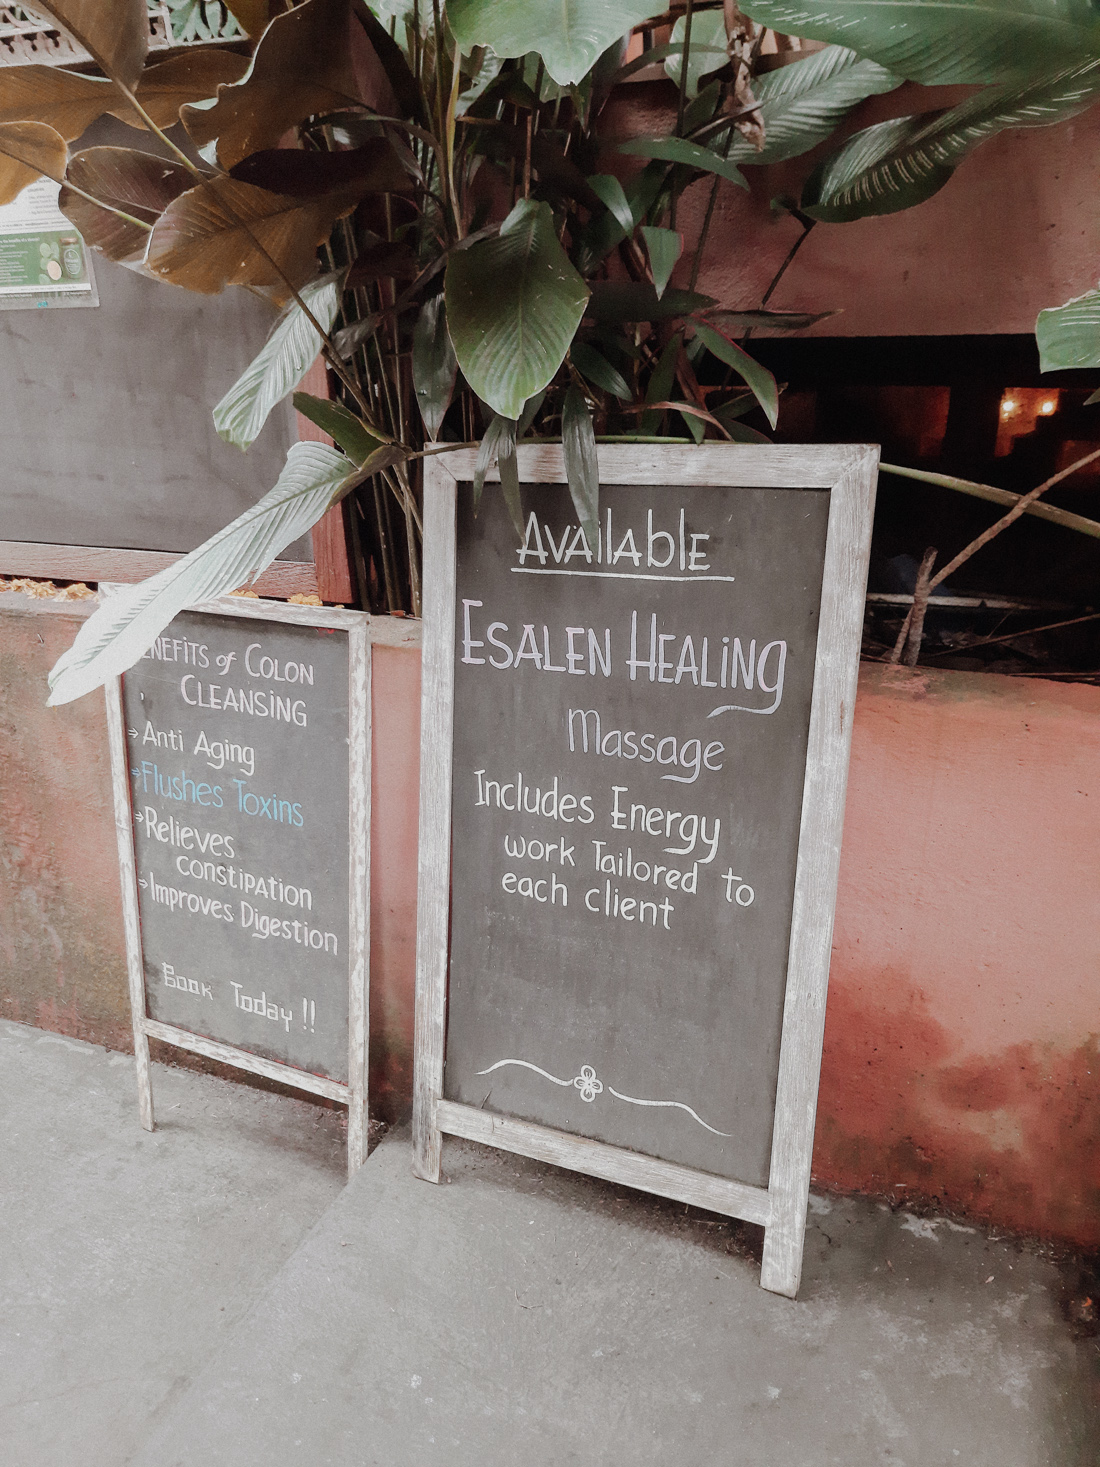 BENEFITS of COLON
CLEANSING
→Anti Aging
→Flushes Toxins
→Relieves
constipation
→Improves Digestion
Book Today !!
Available
ESALEN HEALiNg
Massage
Includes Energy
work Tailored to
each client